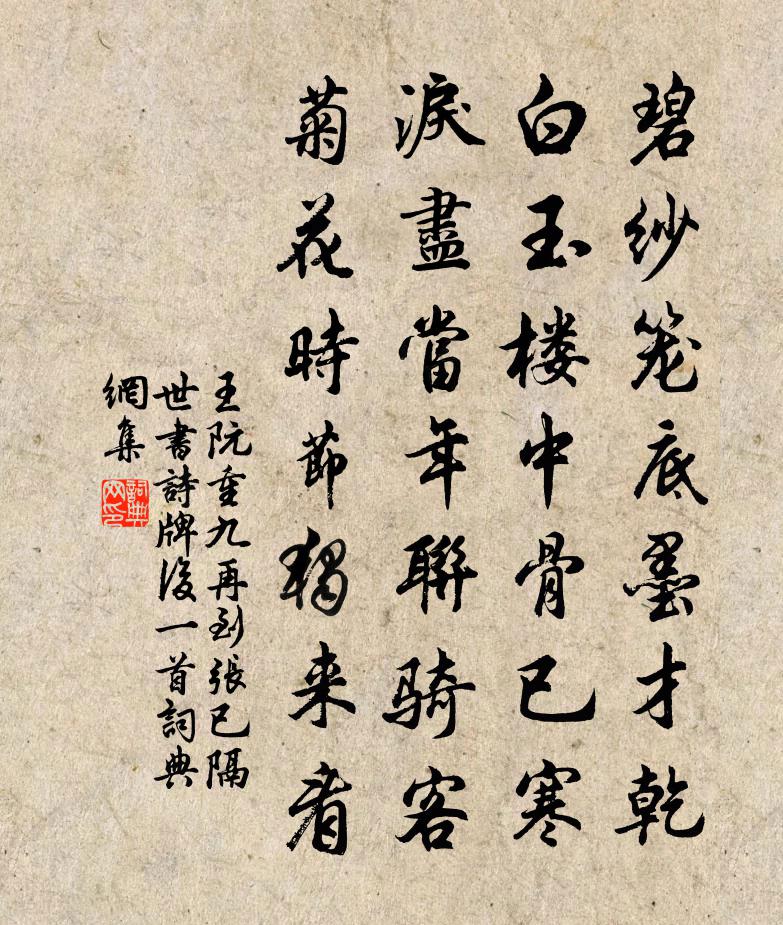 碧紗笼底墨才乾
白玉楼中骨已寒
淚盡當年聯騎客
菊花時節獨来看
王阮重九再到張已隔
世書詩牌後一首詞典
網集
詞典网印